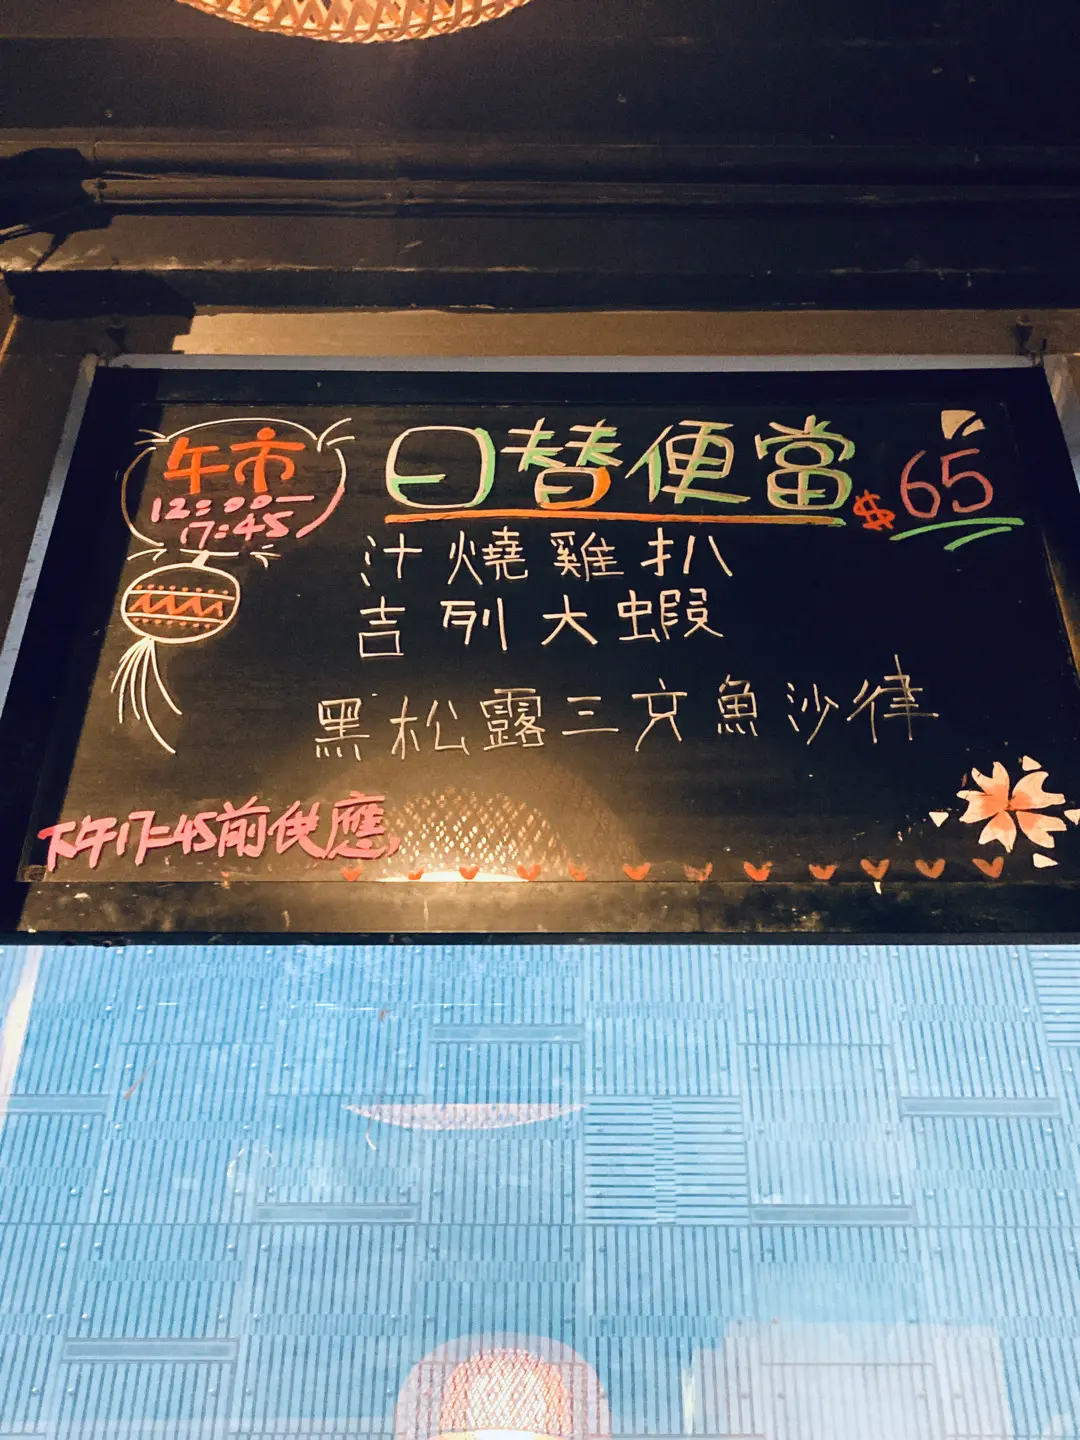 午市
12:00-
17:45
日替便當 $65
汁燒雞扒
吉列大蝦
黑松露三文魚沙律
下午17:45前供應